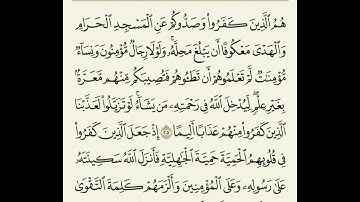 هُمُ ٱلَّذِينَ كَفَرُوا۟ وَصَدُّوكُمْ عَنِ ٱلْمَسْجِدِ ٱلْحَرَامِ
وَٱلْهَدْىَ مَعْكُوفًا أَن يَبْلُغَ مَحِلَّهُۥ ۚ وَلَوْلَا رِجَالٌ مُّؤْمِنُونَ وَنِسَآءٌ
مُّؤْمِنَـٰتٌ لَّمْ تَعْلَمُوهُمْ أَن تَطَـُٔوهُمْ فَتُصِيبَكُم مِّنْهُم مَّعَرَّةٌۢ
بِغَيْرِ عِلْمٍ ۖ لِّيُدْخِلَ ٱللَّهُ فِى رَحْمَتِهِۦ مَن يَشَآءُ ۚ لَوْ تَزَيَّلُوا۟ لَعَذَّبْنَا
ٱلَّذِينَ كَفَرُوا۟ مِنْهُمْ عَذَابًا أَلِيمًا ۝٢٥ إِذْ جَعَلَ ٱلَّذِينَ كَفَرُوا۟
فِى قُلُوبِهِمُ ٱلْحَمِيَّةَ حَمِيَّةَ ٱلْجَـٰهِلِيَّةِ فَأَنزَلَ ٱللَّهُ سَكِينَتَهُۥ
عَلَىٰ رَسُولِهِۦ وَعَلَى ٱلْمُؤْمِنِينَ وَأَلْزَمَهُمْ كَلِمَةَ ٱلتَّقْوَىٰ